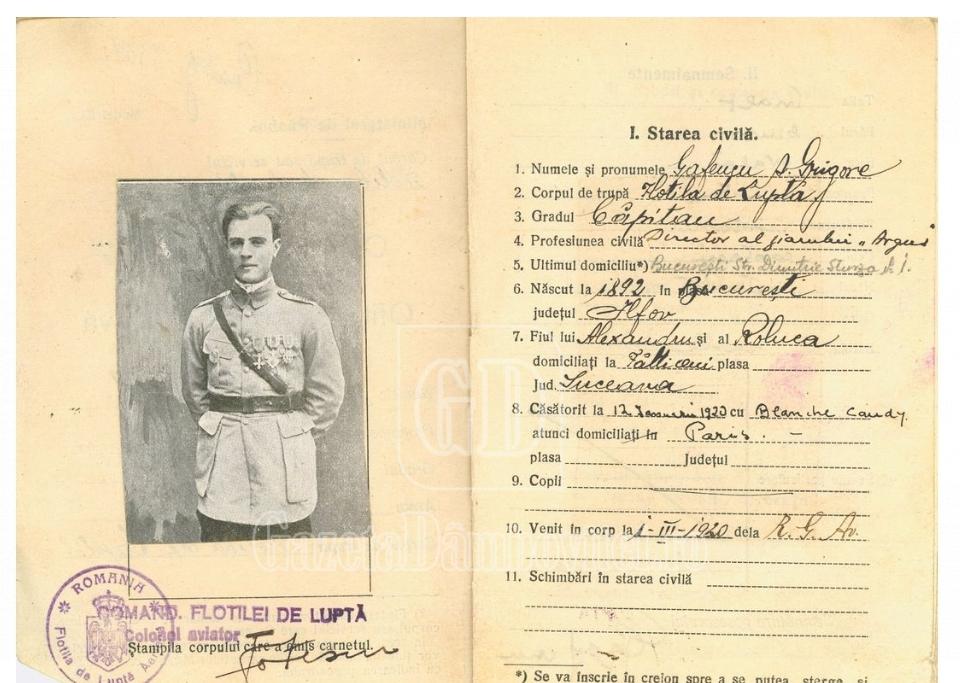 ROMANIA
Flotila de Luptă
COMAND. FLOTILEI DE LUPTĂ
Colonel aviator
Stampila corpului care a emis carnetul.
I. Starea civilă.
1. Numele și pronumele Gafencu A. Grigore
2. Corpul de trupă Flotila de Luptă
3. Gradul Căpitan
4. Profesiunea civilă Director al ziarului „Argus"
5. Ultimul domiciliu*) București Str. Dimitrie Sturza
6. Născut la 1892 în București
județul Ilfov
7. Fiul lui Alexandru și al Raluca
domiciliați la Fălticeni plasa
Jud. Suceava
8. Căsătorit la 12 Ianuarie 1920 cu Blanche
atunci domiciliați în Paris. -
plasa Județul
9. Copii
10. Venit în corp la 1-III-1920 dela R. G. Av.
11. Schimbări în starea civilă
*) Se va înscrie în creion spre a se putea șterge și
GD
Gazeta Dâmboviței.ro